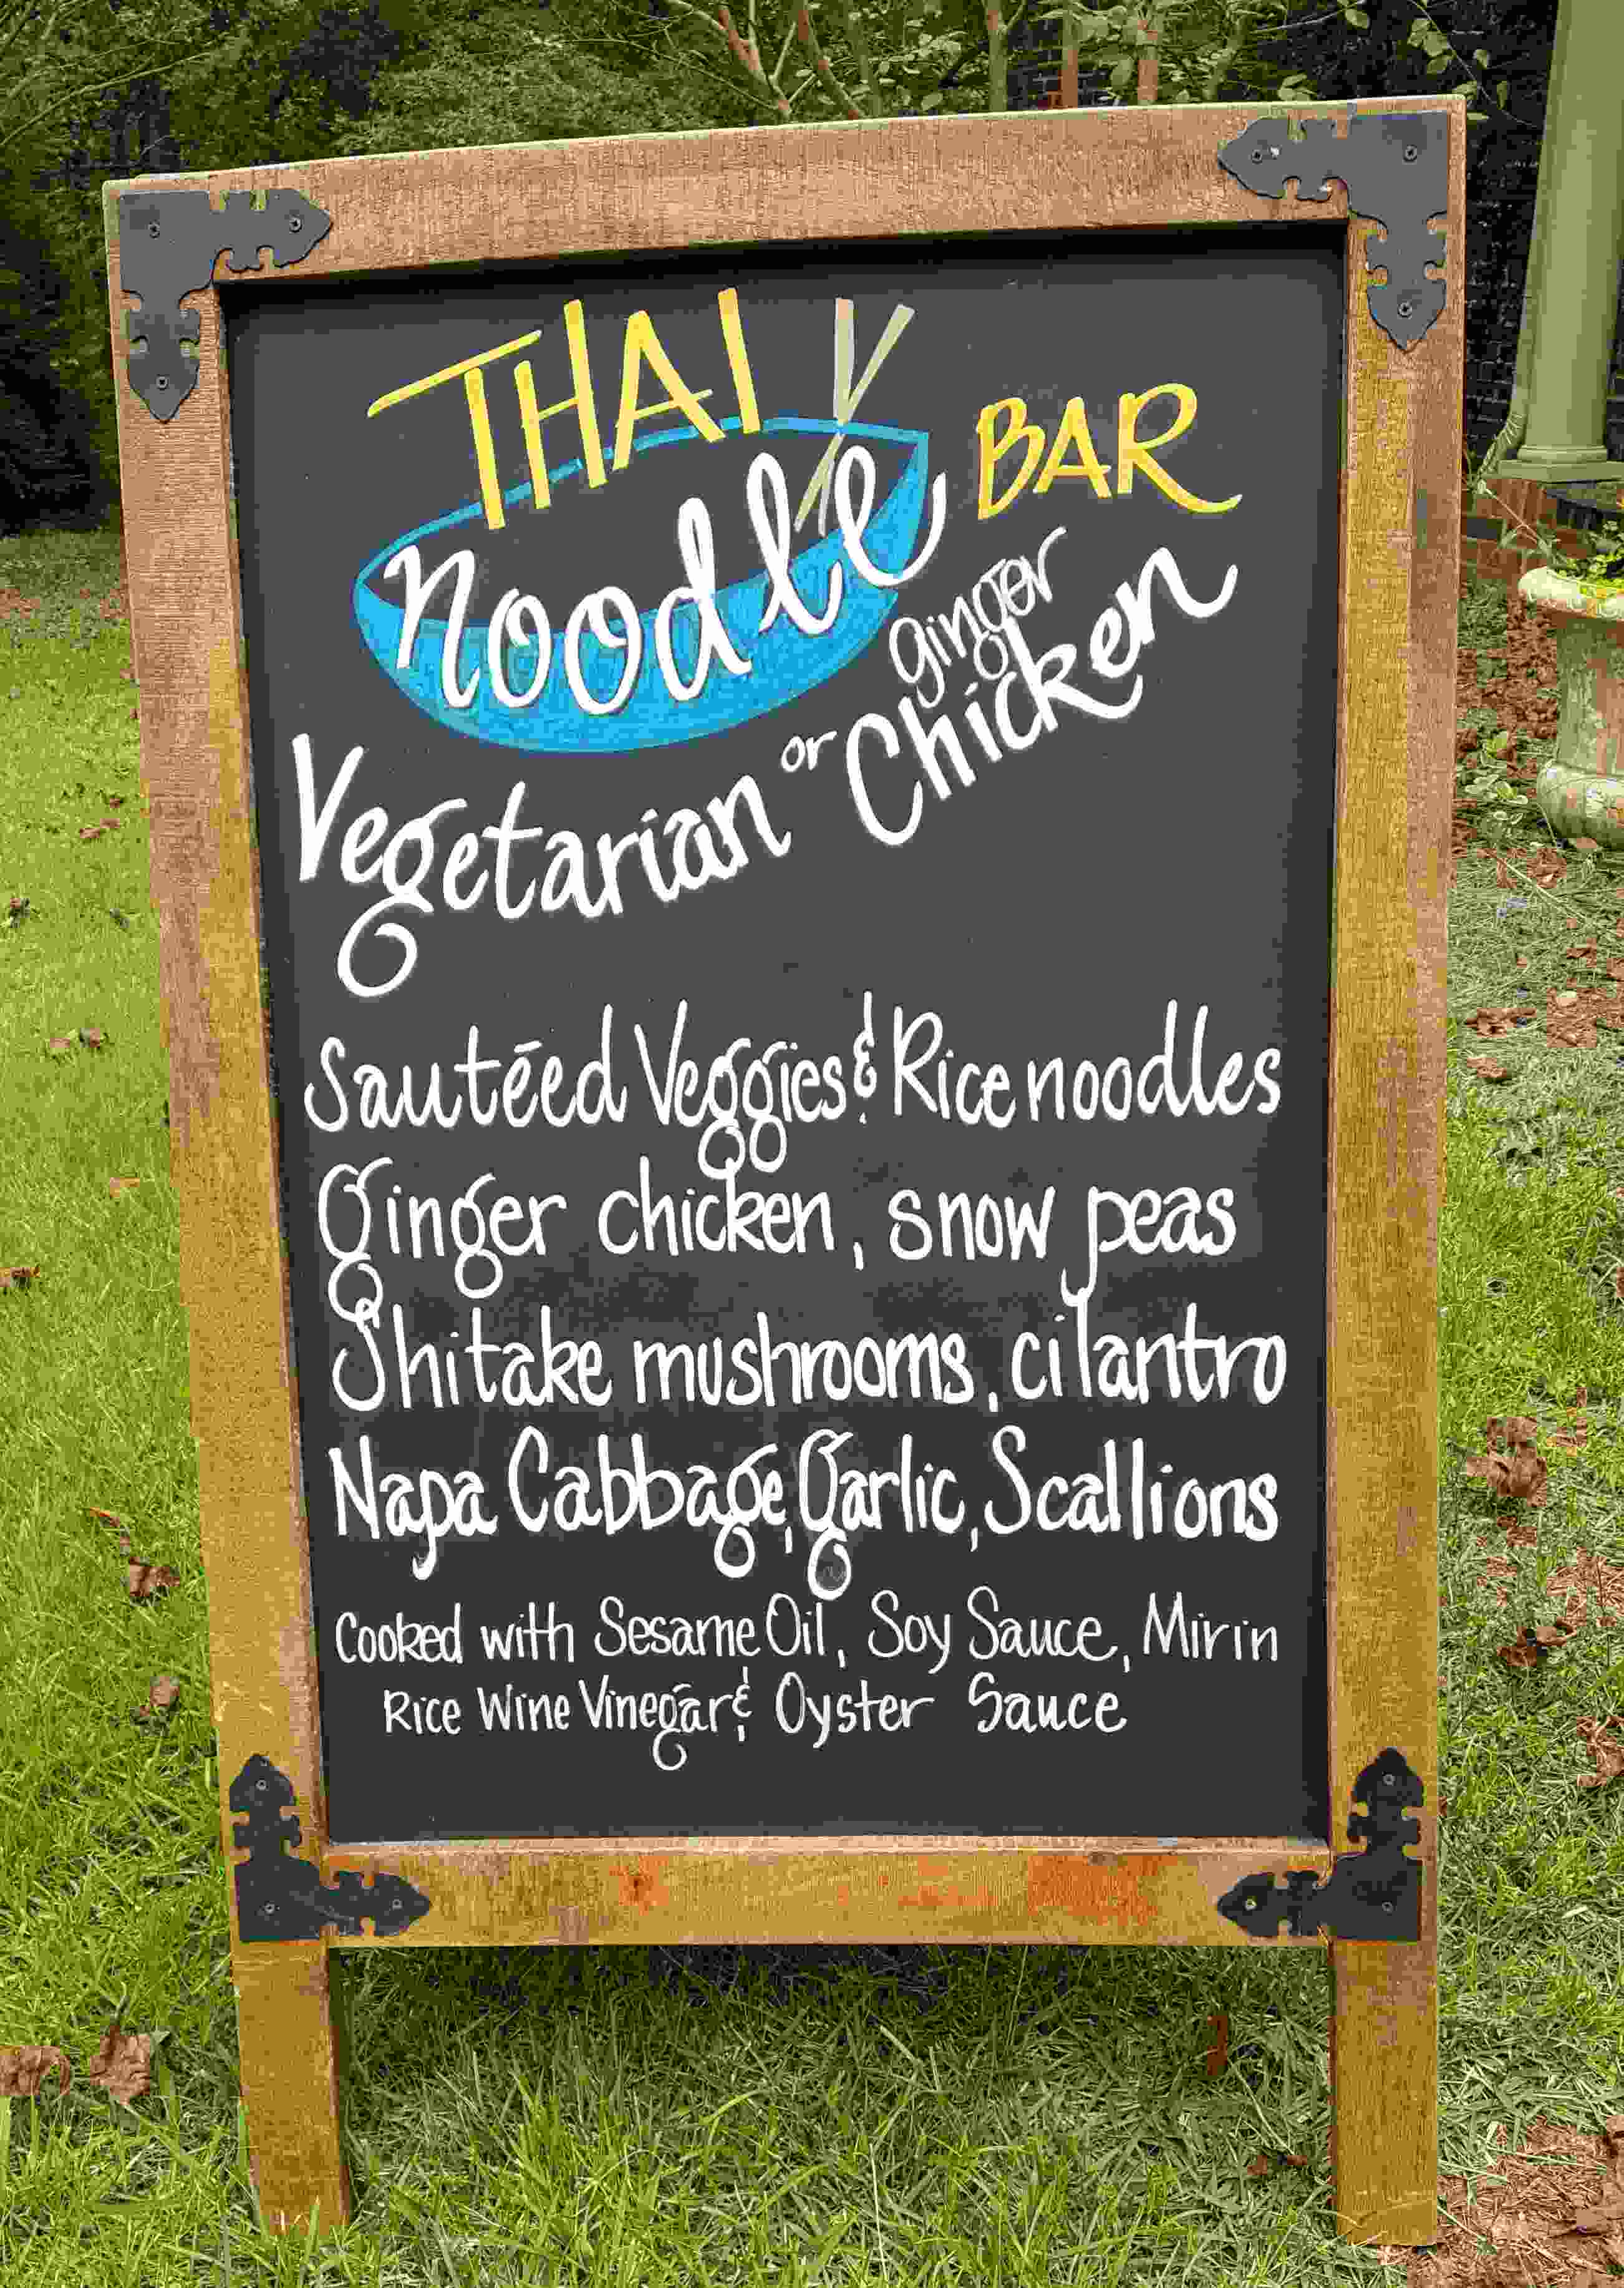 THAI
noodle BAR
Vegetarian or ginger Chicken
Sautéed Veggies & Rice noodles
Ginger chicken, snow peas
Shitake mushrooms, cilantro
Napa Cabbage, Garlic, Scallions
Cooked with Sesame Oil, Soy Sauce, Mirin
Rice Wine Vinegar & Oyster Sauce